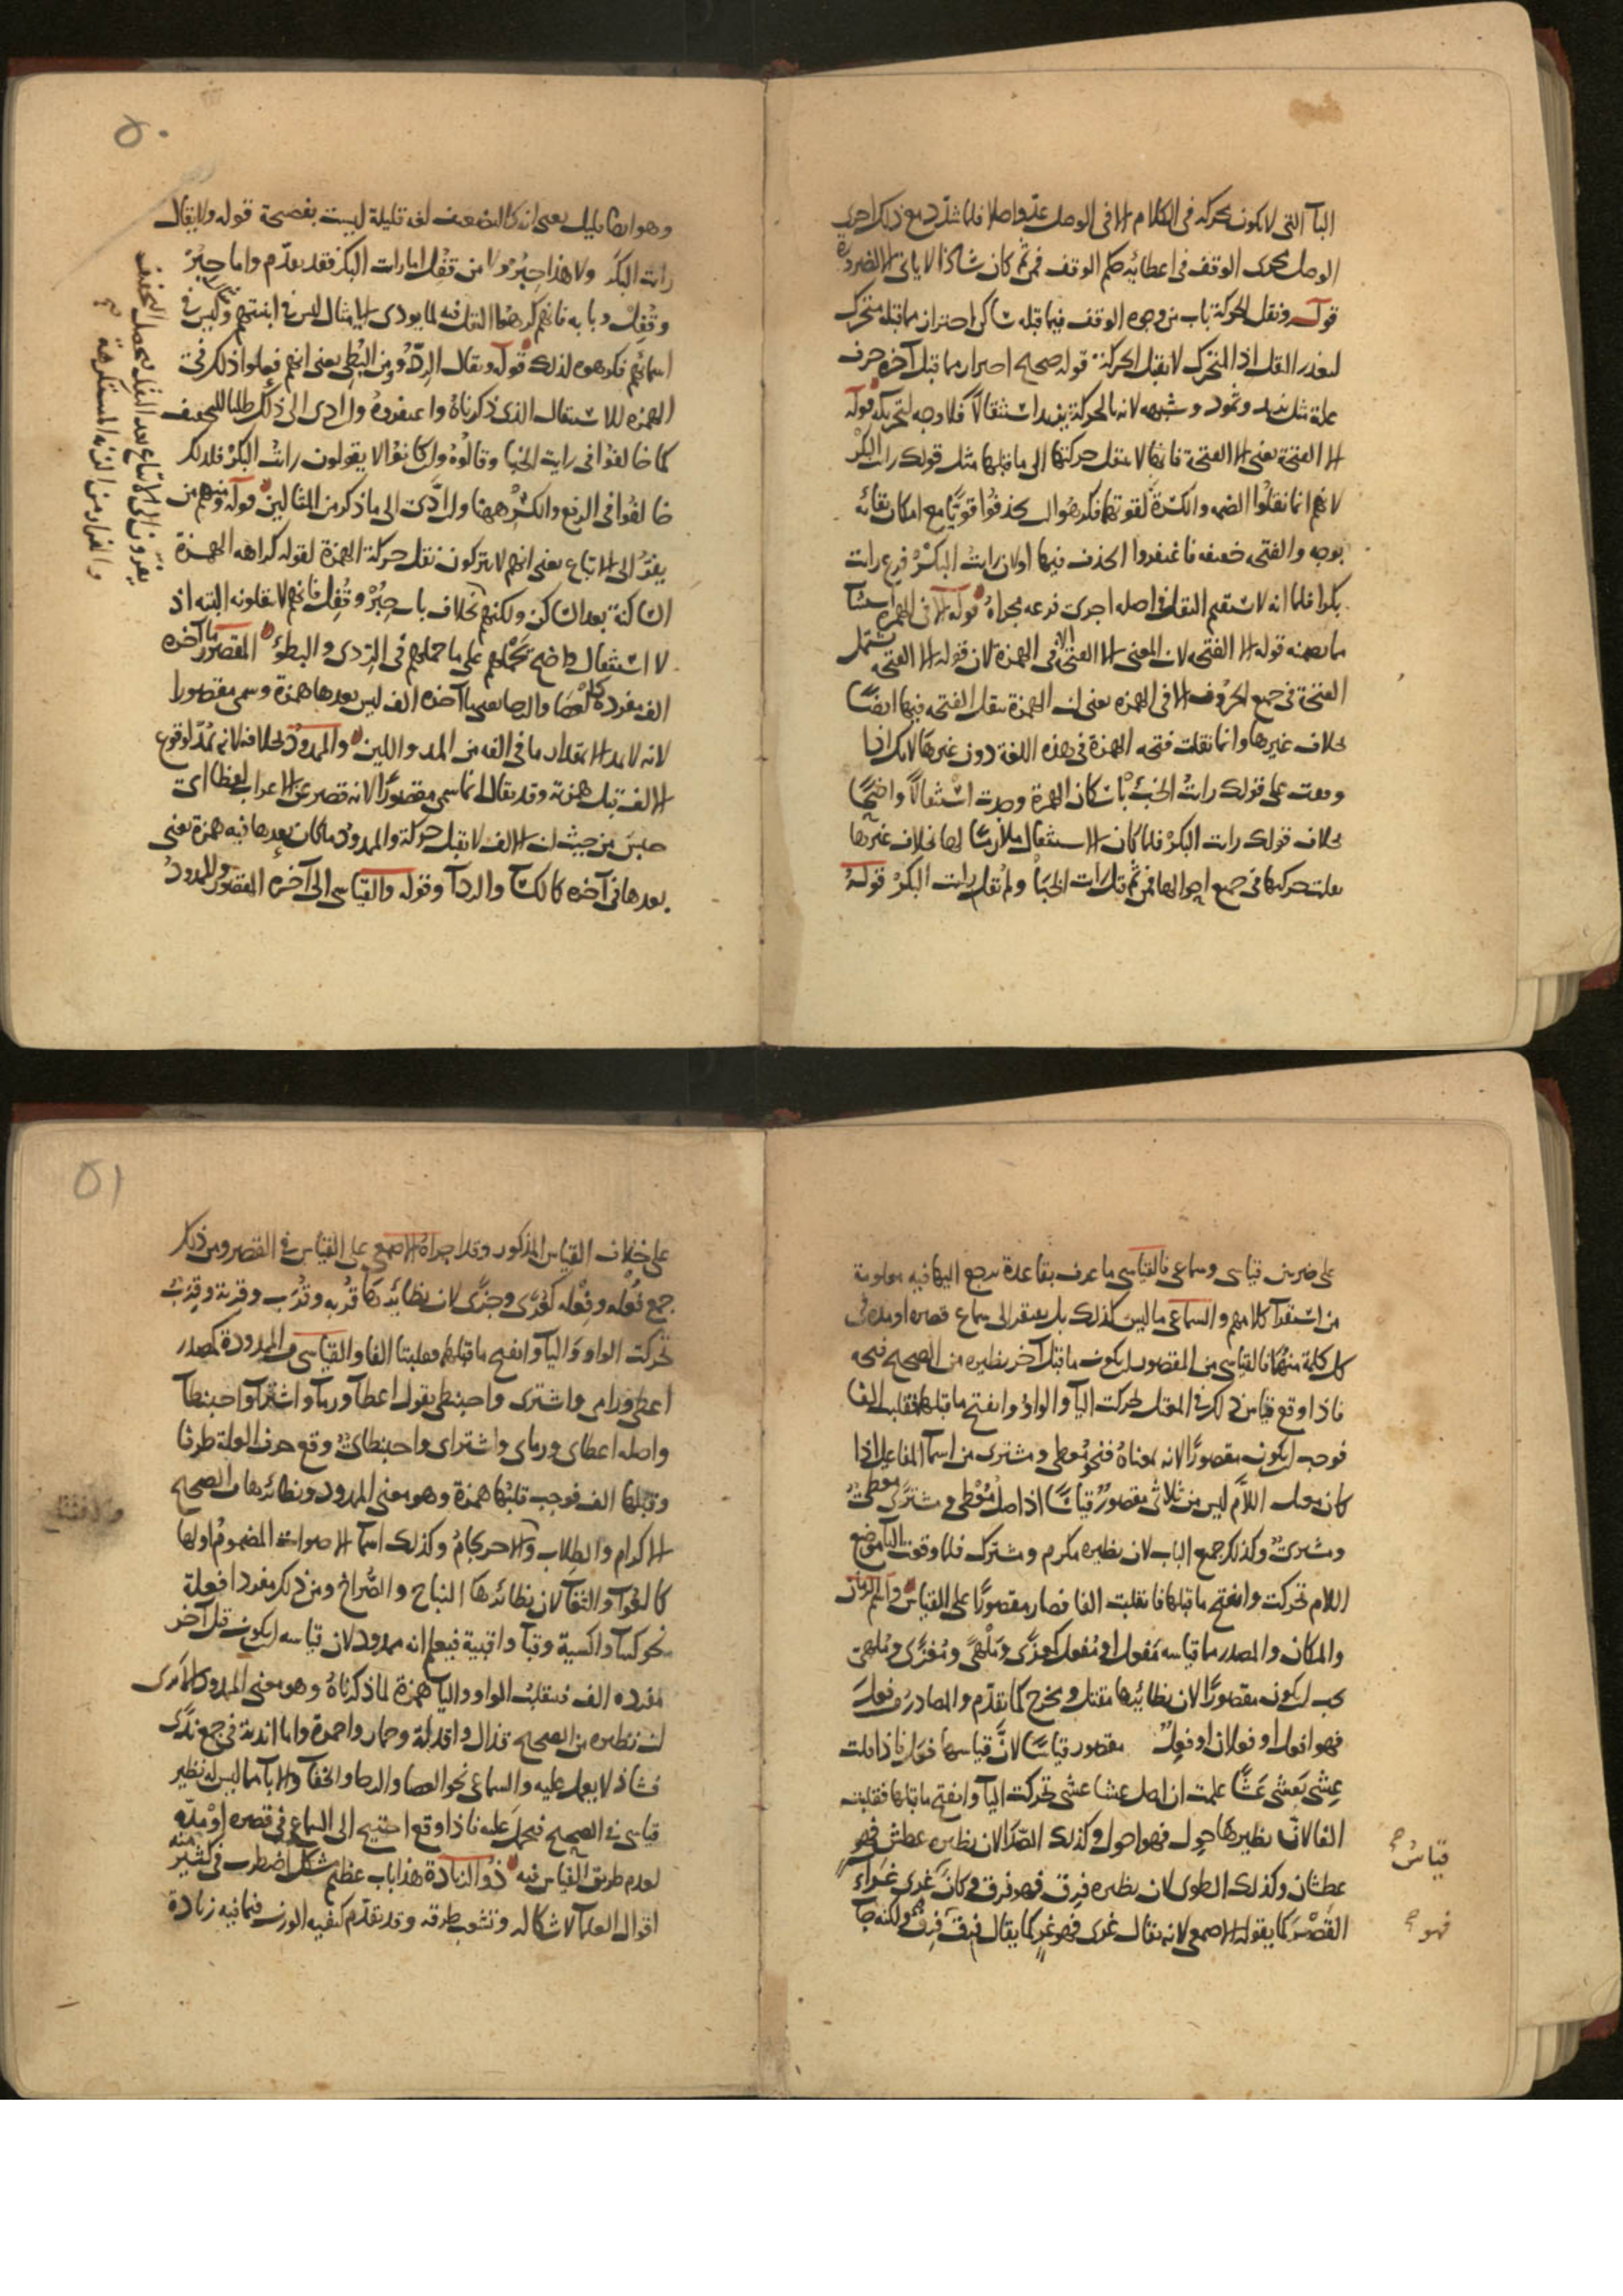 البآ التى لا تكون محركه فى الكلام الا فى الوصل
الوصل مجرى الوقف فى اعطائه حكم الوقف فمن ثم كان شاذا لا ياتى الا لضرورة
قوله ونقل الحركة باب من وجوه الوقف فيما قبله ساكن احترازا مما قبله متحرك
لتعذر النقل اذ المتحرك لا يقبل الحركة قوله صحيح احترازا مما قبل آخره حرف
علة مثل زيد وثمود وشبهه لانه بالحركة يزيد استثقالا فلا وجه لتحريكه قوله
الا الفتحة يعنى الا الفتحة فانها لا تنقل حركتها الى ما قبلها مثل قولك رايت البكر
لانهم انما نقلوا الضمة والكسرة لقوتهما فكرهوا ان يحذفوا قويا مع امكان بقائه
بوجه والفتحة خفيفة فاغتفروا الحذف فيها اولان رايت البكر فرع رايت
بكرا فلما انه لا يستقيم النقل فى اصله اجرى فرعه مجراه قوله الا فى الهمزة استثنآ
مما تضمنه قوله الا الفتحة لان المعنى الا الفتحة الا فى الهمزة لان قوله الا الفتحة يشتمل
الفتحة فى جميع الحروف الا فى الهمزه يعنى ان الهمزة تنقل الفتحة فيها ايضا
بخلاف غيرها وانما نقلت فتحة الهمزة فى هذه اللغة دون غيرها لانك اذا
وقفت على قولك رايت الخبء باسكان الهمزة وجدت استثقالا واضحا
بخلاف قولك رايت البكر فلما كان الاستثقال ملازما لها بخلاف غيرها
نقلت حركتها فى جميع احوالها فمن ثم قيل رايت الخبا ولم يقل رايت البكر قوله
٥٠
وهو ايضا قليل يعنى انه كالتضعيف لغة قليلة ليست بفصيحة قوله ولا يقال
رايت البكر ولا هذا حبر ولا من قفل اما رايت البكر فقد تقدم واما حبر
وقفل وبابه فانهم كرهوا النقل فيه لما يودى الى مثال ليس فى ابنيتهم وليس فى
اسمائهم فكرهوه لذلك قوله ويقال الردؤ ومن البطئ يعنى انهم فعلوا ذلك فى
الهمزه للاستثقال الذى ذكرناه واغتفروه وان ادى الى ذلك طلبا للتخفيف
كما خالفوا فى رايت الخبا وقالوه وان كانوا لا يقولون رايت البكر فلذلك
خالفوا فى الرفع والكسر ههنا وان ادت الى ما ذكر من المثالين قوله ومنهم من
يفر الى الاتباع يعنى انهم لا يتركون نقل حركة الهمزة لقوله كراهة الهمزة
الساكنة بعد الساكن ولكنهم بخلاف باب حبر وقفل فانهم لا ينقلونه البته اذ
لا استثقال واضح يحملهم على ما حملهم فى الردئ والبطؤ المقصور ما آخره
الف مفردة كالعصا والرحا يعنى ما آخره الف ليس بعدها همزة وسمى مقصورا
لانه لا يمد الا بمقدار ما فى الفه من المد واللين والممدود بخلافه لانه يمد لوقوع
الالف قبل همزته وقد يقال انما سمى مقصورا لانه قصر عن الاعراب لفظا اى
حبس من حيث ان الالف لا تقبل حركة والممدود ما كان بعدها فيه همزة يعنى
بعدها فى آخره كالكسآ والردآ وقوله والقياسى الى آخره المقصور والممدود
يفرون الى الاتباع بعد النقل
والفرار من الزنة المستكرهة
٥١
على ضربين قياسى وسماعى فالقياسى ما عرف بقاعدة يرجع اليها فيه معلومة
من استقرآ كلامهم والسماعى ما ليس كذلك بل يفتقر الى سماع قصره او مده فى
كل كلمة منهما فالقياسى من المقصور ان يكون ما قبل آخر نظيره من الصحيح فتحه
فاذا وقع قياس ذلك فى المعتل تحركت اليآ والواو وانفتح ما قبلها فتقلب الفا
فوجب ان يكون مقصورا لانه معناه فنحو معطى ومشترى من اسمآ المفاعيل اذا
كان معتل اللام ليس من ثلاثى مقصور قياسا اذ اصل معطى ومشترى معطى
ومشترى وكذلك جميع الباب لان نظيره مكرم ومشترك فلما وقعت اليآ موضع
اللام تحركت وانفتح ما قبلها فانقلبت الفا فصار مقصورا على القياس واسم الزمان
والمكان والمصدر مما قياسه مفعل او مفعل كمغزى وملهى ومغزى وملهى
يجب ان يكون مقصورا لان نظائرها مقتل ومخرج كما تقدم والمصادر من فعل
فهو افعل او فعلان او فعل مقصور قياسا لان قياسها فعل فاذا قلت
عشى يعشى عشا علمت ان اصل عشا عشى تحركت اليآ وانفتح ما قبلها فقلبت
الفا لان نظيرها حول فهو احول وكذلك الصدا لان نظيره عطش فهو
عطشان وكذلك الطوى لان نظيره فرق فهو فرق وكان غرى غرآء
القصر كما يقوله الاصمعى لانه يقال غرى فهو غر كما يقال فرق فهو فرق ولكنه جآ
قياس صح
فهو صح
على خلاف القياس المذكور وقد اجراه الاصمعى على القياس فى القصر ومن ذلك
جمع فعلة وفعلة كعرى وجزى لان نظائرها قربة وقرب وقربة وقرب
تحركت الواو واليآ وانفتح ما قبلهما فقلبتا الفا والقياسى من الممدودة كمصدر
اعطى ورامى واشترى واحبنطى يقول اعطآ ورمآ واشترآ واحبنطآ
واصله اعطاى ورماى واشتراى واحبنطاى وقع حرف العلة طرفا
وقبلها الف فوجب قلبها همزة وهو معنى الممدود ونظائرها من الصحيح
الاكرام والطلاب والاحرنجام وكذلك اسمآ الاصوات المضموم اولها
كالعوآ والثغآ لان نظائرها النباح والصراخ ومن ذلك مفرد افعلة
نحو كسآ واكسية وقبآ واقبية فيعلم انه ممدود لان قياسه ان يكون قبل آخر
مفرده الف فتنقلب الواو واليآ همزة لما ذكرناه وهو معنى الممدود الا ترى
ان نظيره من الصحيح قذال واقذلة وحمار واحمرة واما اندية فى جمع ندى
فشاذ لا يعمل عليه والسماعى نحو العصا والرحا والخفآ والابآ مما ليس له نظير
قياسى فى الصحيح فيحمل عليه فاذا وقع احتيج الى السماع فى قصره او مده
لعدم طريق القياس فيه ذو الزيادة هذا باب عظيم مشكل اضطرب فى كثير منه
اقوال العلمآ لاشكاله وتشعب طرقه وقد تقدم كيفيه الوزن فيما فيه زيادة